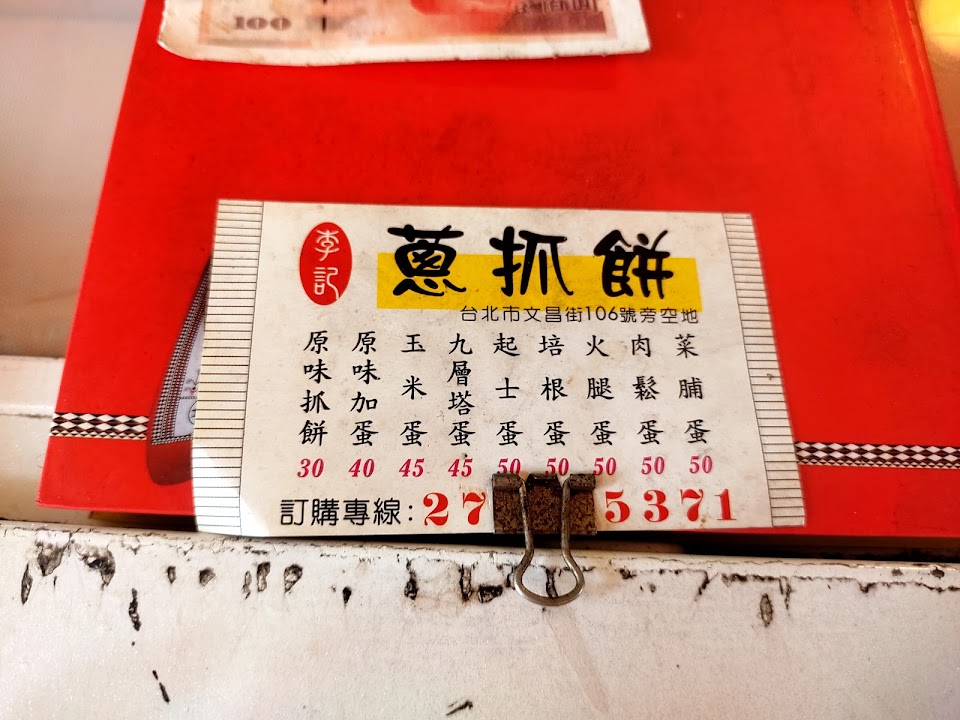 100
李記
蔥抓餅
台北市文昌街106號旁空地
原味抓餅 30
原味加蛋 40
玉米蛋 45
九層塔蛋 45
起士蛋 50
培根蛋 50
火腿蛋 50
肉鬆蛋 50
菜脯蛋 50
訂購專線:27 5371